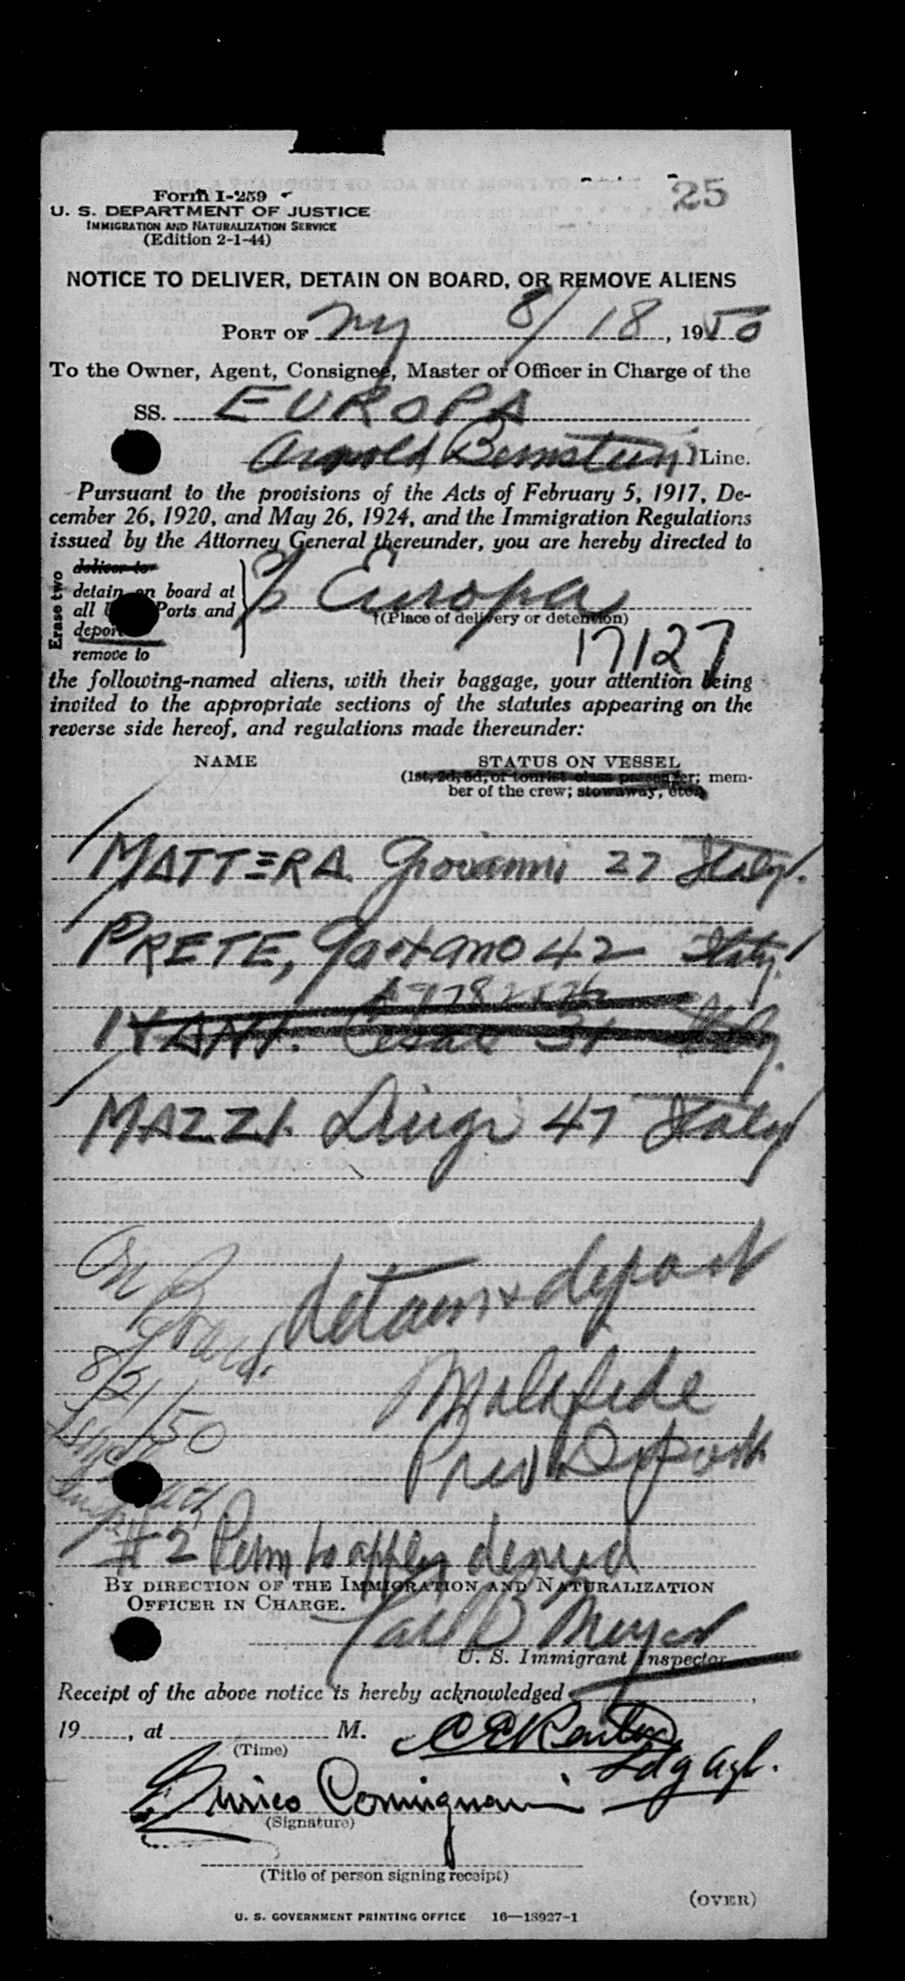 25
Form I-259
U. S. DEPARTMENT OF JUSTICE
IMMIGRATION AND NATURALIZATION SERVICE
(Edition 2-1-44)
NOTICE TO DELIVER, DETAIN ON BOARD, OR REMOVE ALIENS
PORT OF NY 8/18, 1950
To the Owner, Agent, Consignee, Master or Officer in Charge of the
SS. EUROPA
Arnold Bernstein Line.
Pursuant to the provisions of the Acts of February 5, 1917, De-
cember 26, 1920, and May 26, 1924, and the Immigration Regulations
issued by the Attorney General thereunder, you are hereby directed to
Erase two
deliver to
detain on board at
all Ports and
deport
remove to
Europa
(Place of delivery or detention)
17127
the following-named aliens, with their baggage, your attention being
invited to the appropriate sections of the statutes appearing on the
reverse side hereof, and regulations made thereunder:
NAME STATUS ON VESSEL
(1st, 2d, 3d, or tourist class passenger; mem-
ber of the crew; stowaway, etc.)
MATTERA. Giovanni 27 Italy.
PRETE, Gaetano 42 Italy
Cesare 31 Italy.
MAZZI. Luigi 47 Italy
On Board
8/21/50
detain & deport
Malafide
Prev Deport
#2 Perm to apply denied
BY DIRECTION OF THE IMMIGRATION AND NATURALIZATION
OFFICER IN CHARGE.
Carl B Meyer
U. S. Immigrant Inspector
Receipt of the above notice is hereby acknowledged
19, at M.
(Time)
Enrico
(Signature)
(Title of person signing receipt)
(OVER)
U. S. GOVERNMENT PRINTING OFFICE 16—13927-1